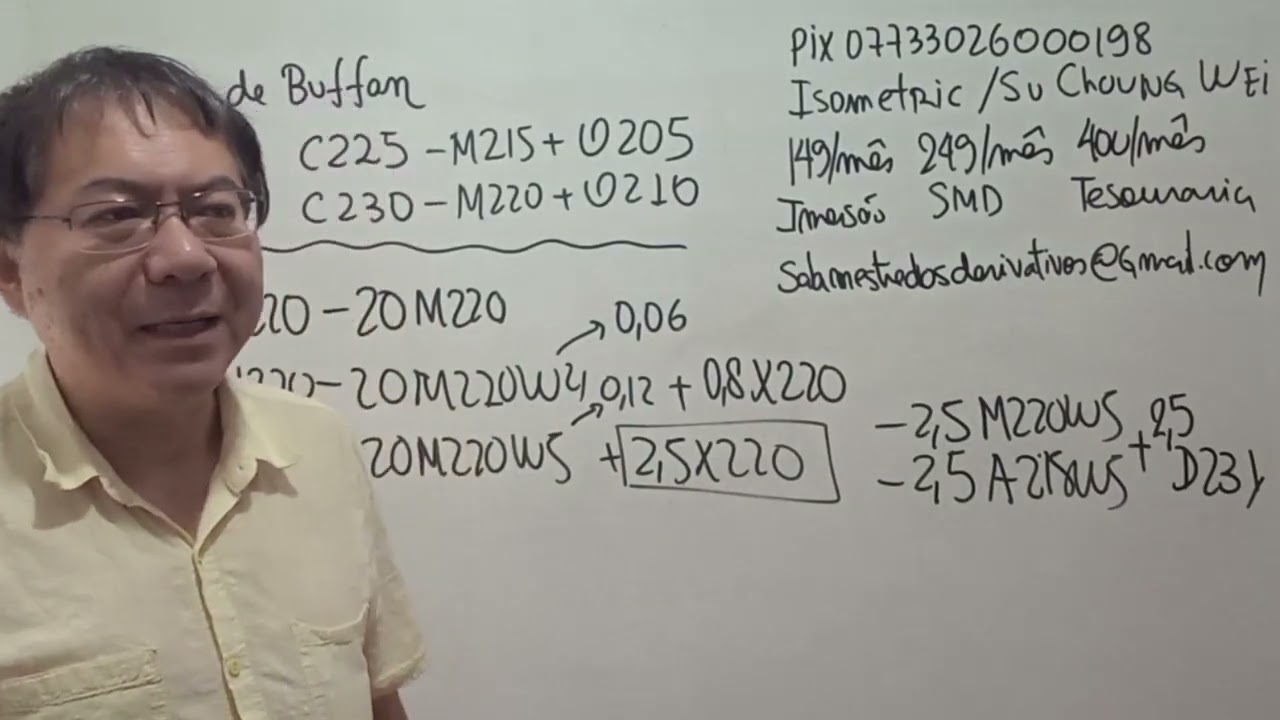 de Buffan
C225 - M215 + O205
C230 - M220 + O210
220 - 20M220
0,06
220 - 20M220W4 0,12 + 0,8X220
20M220W5 + 2,5X220
PIX 07733026000198
Isometric / SU CHOUNG WEI
149/mês 249/mês 400/mês
Imersão SMD Tesouraria
Salamestredosderivativos@Gmail.com
- 2,5 M220W5 + 2,5
- 2,5 A218W5 D23